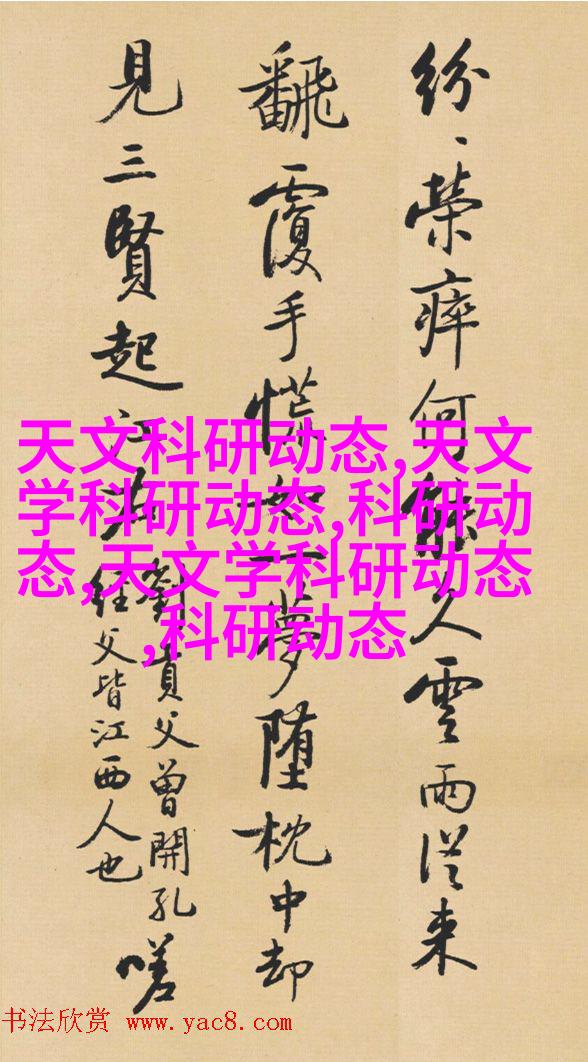 紛、榮瘁何能久雲雨從来
飜覆手慌如一夢墮枕中却
見三賢起江右
劉貢父曾開孔
經父皆江西人也
嗟
天文科研动态,天文
学科研动态,科研动
态,天文学科研动态
,科研动态
书法欣赏 www.yac8.com